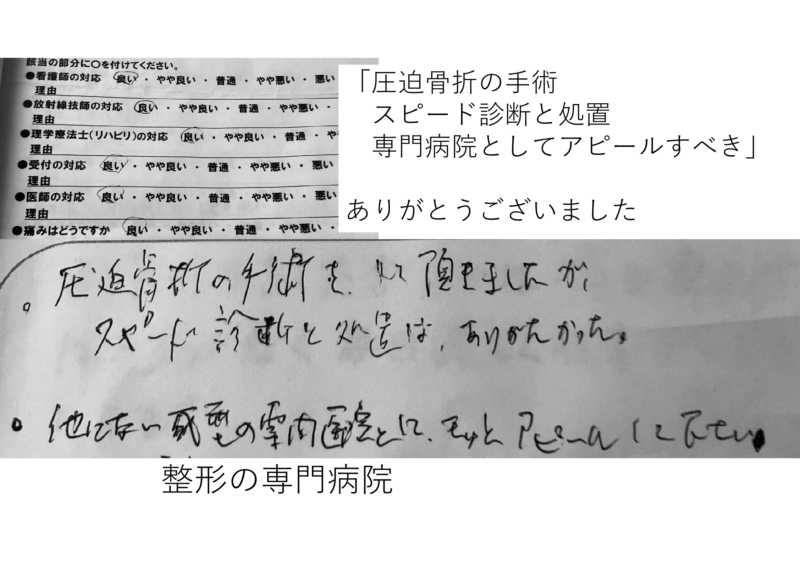 該当の部分に〇を付けてください。
●看護師の対応 良い ・ やや良い ・ 普通 ・ やや悪い ・ 悪い
理由
●放射線技師の対応 良い ・ やや良い ・ 普通 ・ やや悪い ・
理由
●理学療法士(リハビリ)の対応 良い ・ やや良い ・ 普通 ・ やや
理由
●受付の対応 良い ・ やや良い ・ 普通 ・ やや悪い ・ 悪い
理由
●医師の対応 良い ・ やや良い ・ 普通 ・ やや悪い ・ 悪い
理由
●痛みはどうですか 良い ・ やや良い ・ 普通 ・ やや悪い ・
「圧迫骨折の手術
スピード診断と処置
専門病院としてアピールすべき」
ありがとうございました
圧迫骨折の手術を、して頂きましたが
スピード診断と処置は、ありがたかった。
他にない の専門医院として、もっとアピールして下さい。
整形の専門病院